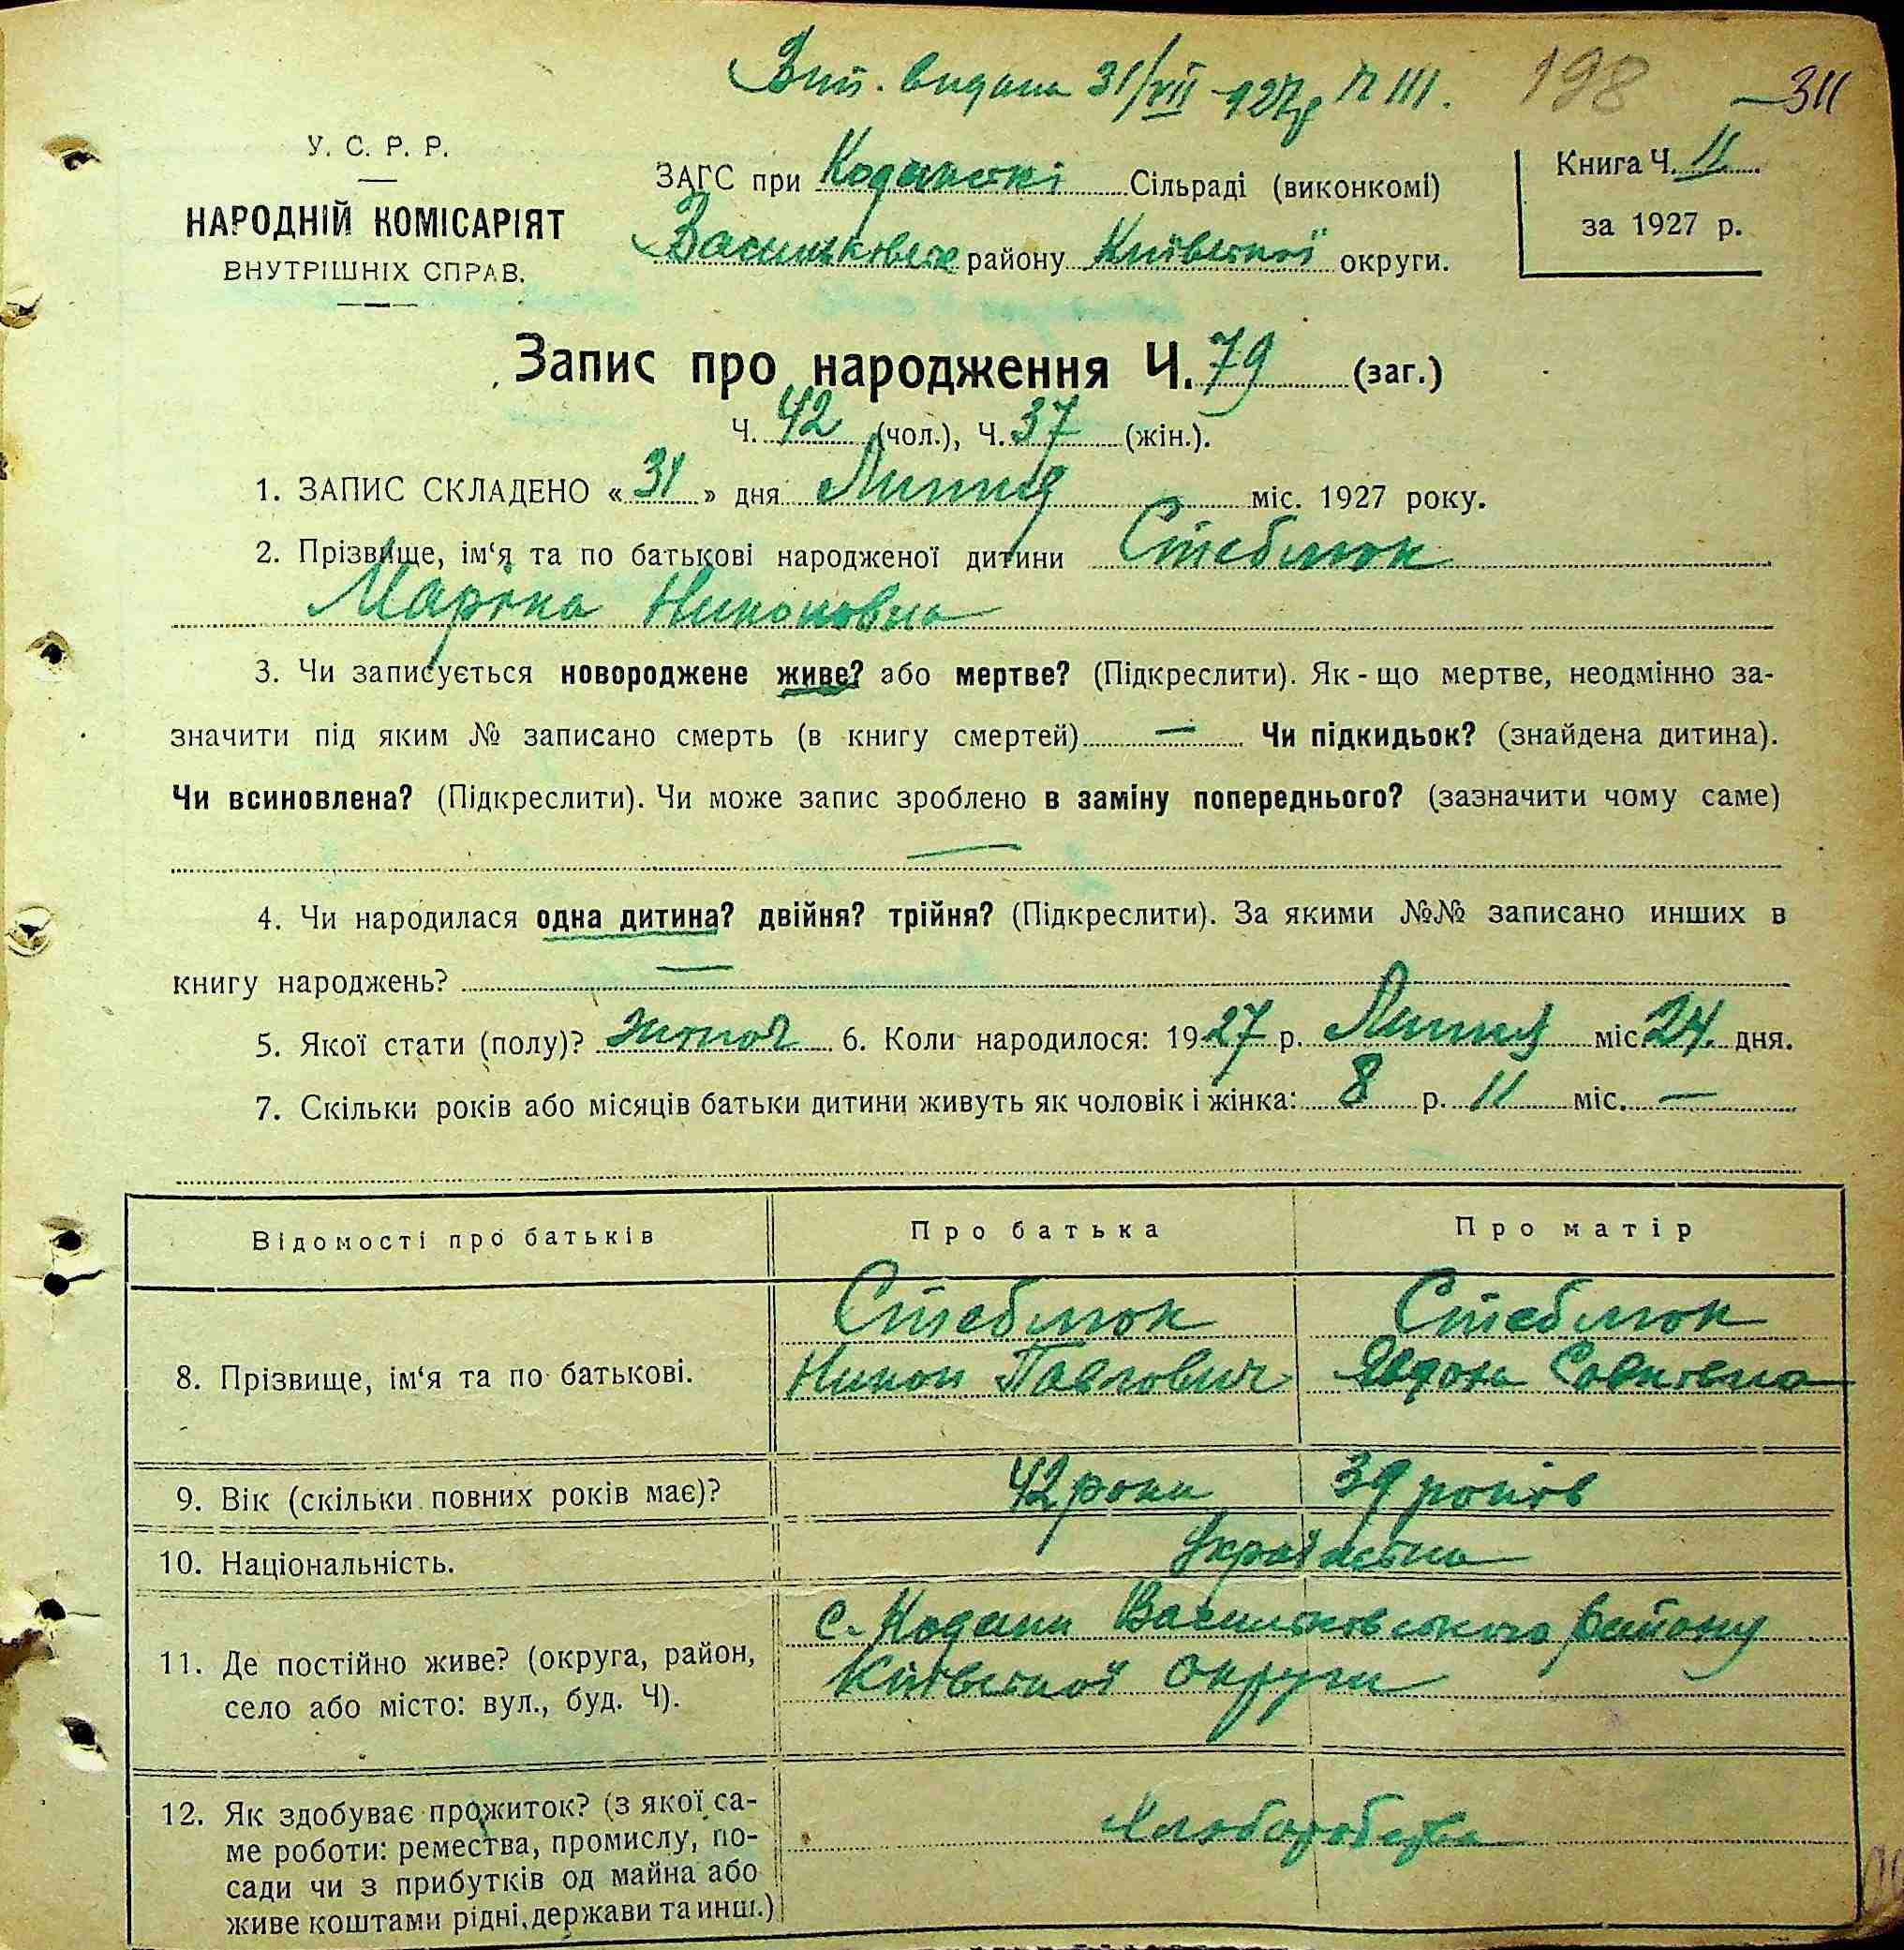 Вип. видана 31/VII-927р N 111. 198 –311
У. С. Р. Р.
НАРОДНІЙ КОМІСАРІЯТ
ВНУТРІШНІХ СПРАВ.
ЗАГС при Коданській Сільраді (виконкомі)
Васильківськ району Київської округи.
Книга Ч. 11
за 1927 р.
Запис про народження Ч. 79 (заг.)
Ч. 42 (чол.), Ч. 37 (жін.).
1. ЗАПИС СКЛАДЕНО «31» дня Липня міс. 1927 року.
2. Прізвище, ім‘я та по батькові народженої дитини Стеблюк
Маріка Никоновна
3. Чи записується новороджене живе? або мертве? (Підкреслити). Як-що мертве, неодмінно за-
значити під яким № записано смерть (в книгу смертей) — Чи підкидьок? (знайдена дитина).
Чи всиновлена? (Підкреслити). Чи може запис зроблено в заміну попереднього? (зазначити чому саме)
—
4. Чи народилася одна дитина? двійня? трійня? (Підкреслити). За якими №№ записано инших в
книгу народжень? —
5. Якої стати (полу)? жіночої 6. Коли народилося: 1927 р. Липня міс. 24. дня.
7. Скільки років або місяців батьки дитини живуть як чоловік і жінка: 8 р. 11 міс. —
Відомості про батьків Про батька Про матір
8. Прізвище, ім‘я та по батькові.
Стеблюк Стеблюк
Никон Павлович Явдоха Савковна
9. Вік (скільки повних років має)? 42 роки 39 років
10. Національність. Українська
11. Де постійно живе? (округа, район,
село або місто: вул., буд. Ч).
с. Кодаки Васильковського району
Київської округи
12. Як здобуває прожиток? (з якої са-
ме роботи: ремества, промислу, по-
сади чи з прибутків од майна або
живе коштами рідні, держави та инш.)
Хліборобство